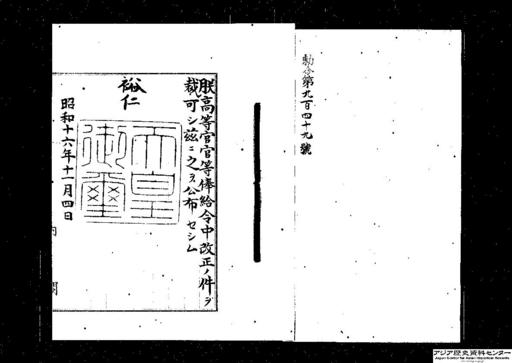 勅令第九百四十九號
朕高等官官等俸給令中改正ノ件ヲ
裁可シ茲ニ之ヲ公布セシム
裕仁
天皇
御璽
昭和十六年十一月四日
内閣
アジア歴史資料センター
Japan Center for Asian Historical Records